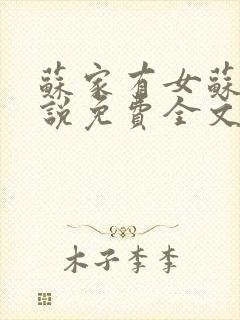 蘇家有女蘇
說免費全文
木子李李